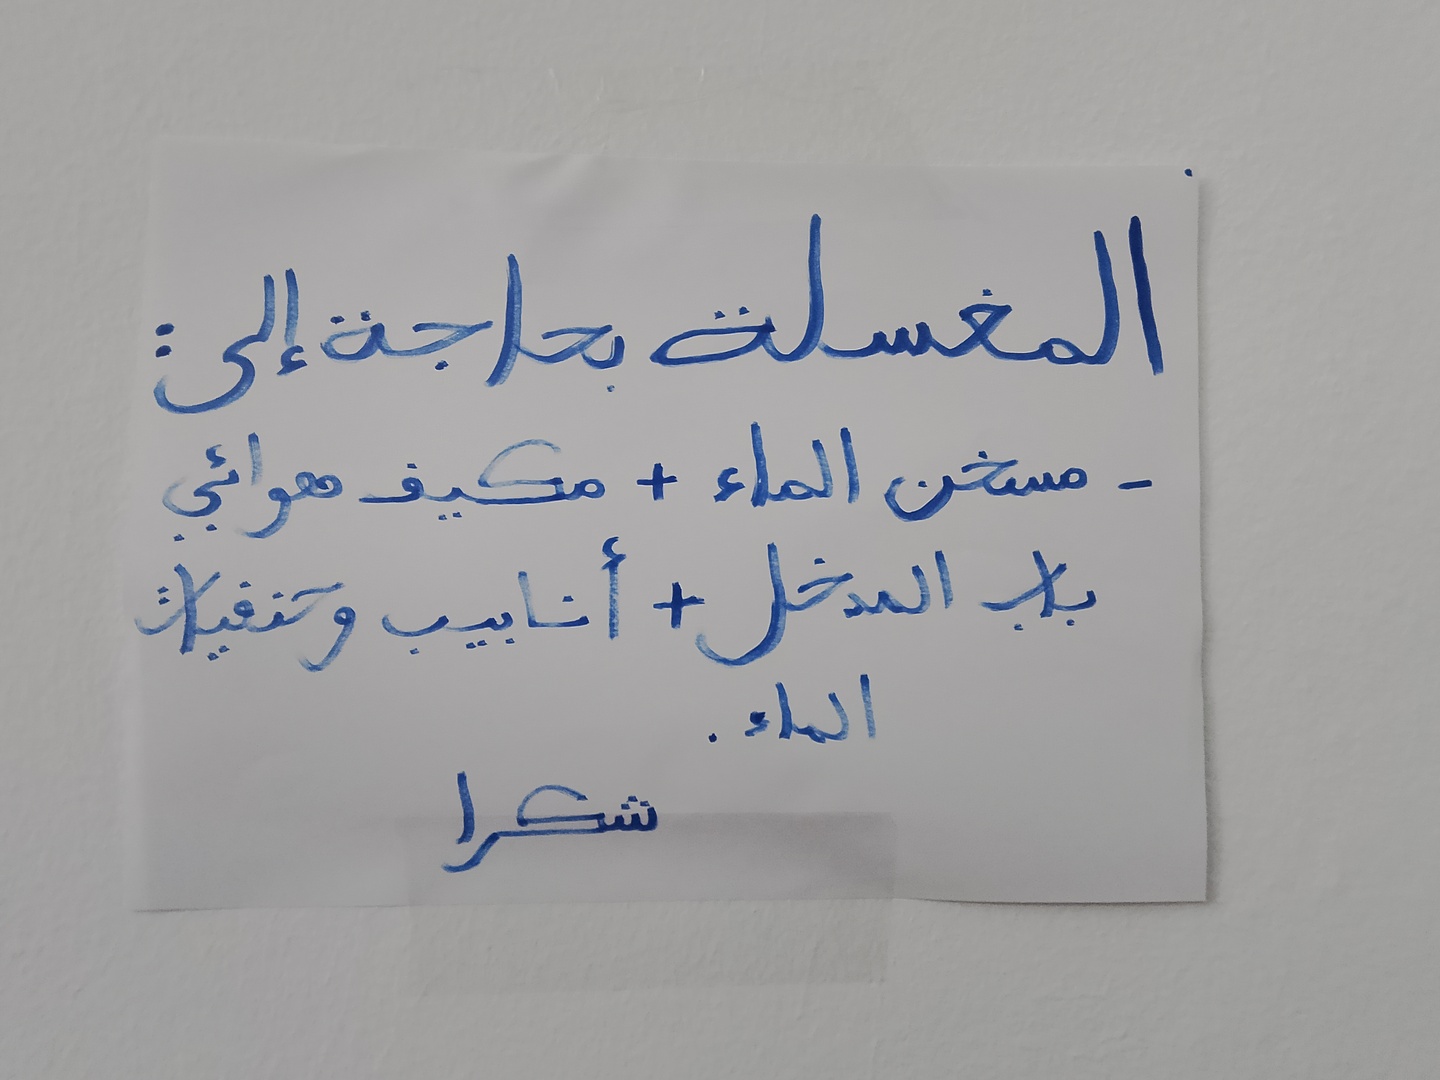 المغسلة بحاجة إلى:
- مسخن الماء + مكيف هوائي
باب المدخل + أنابيب وحنفيات
الماء.
شكرا